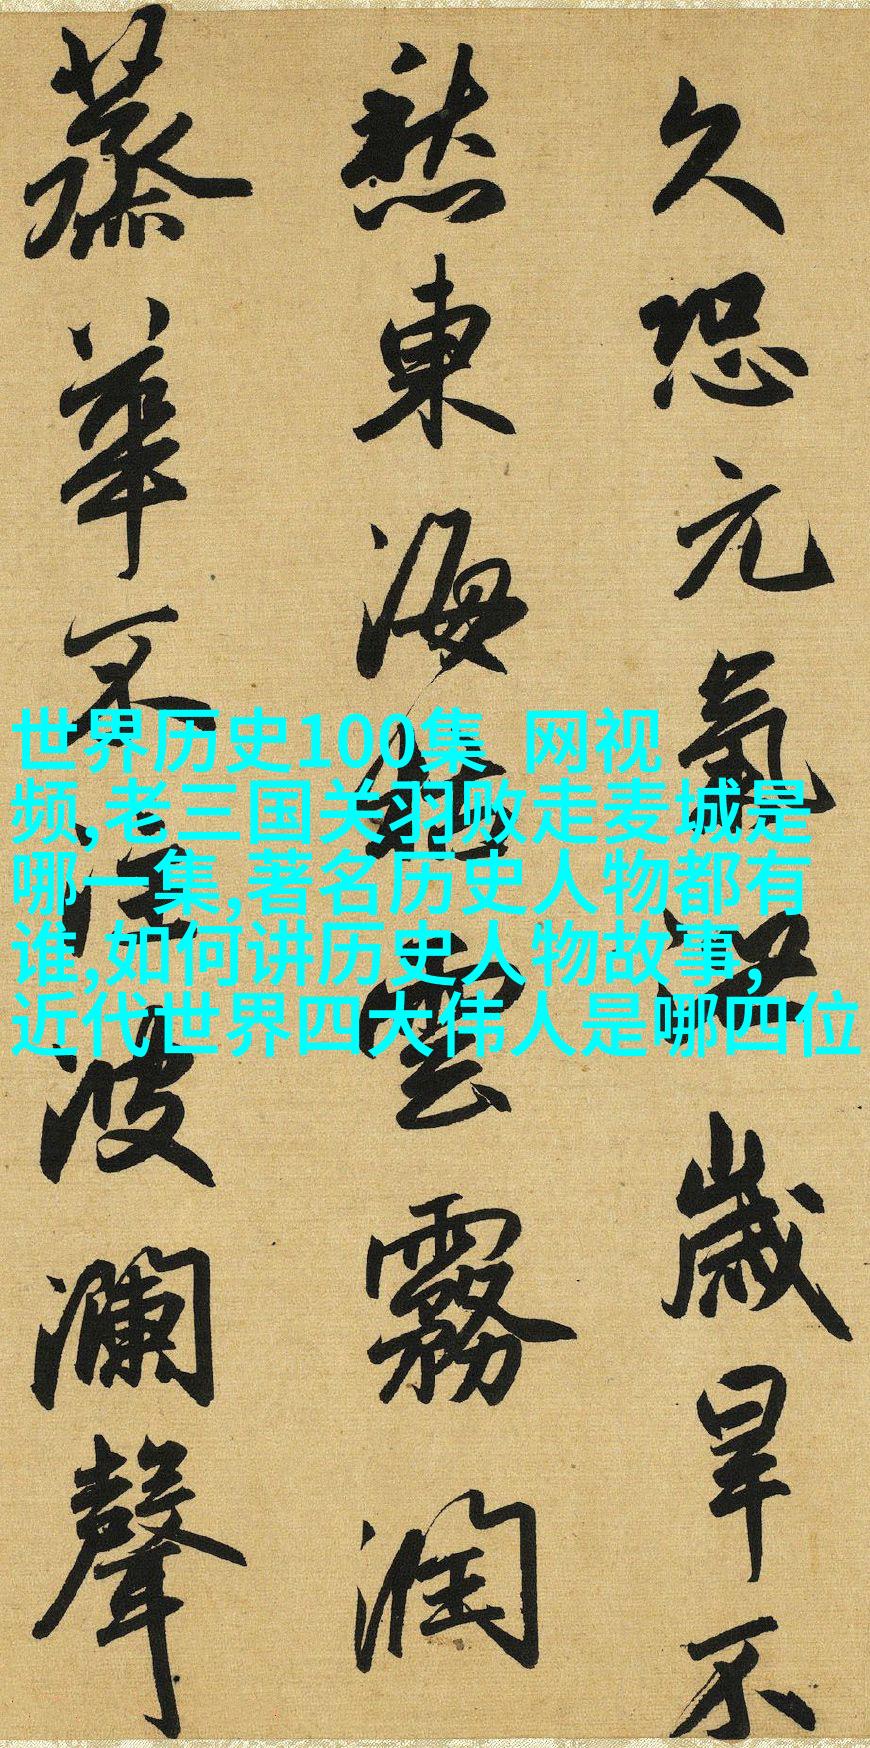 久恐元氣歲旱不
愁東海雲霧潤
蒸華不注波瀾聲
世界历史100集 网视
频,老三国关羽败走麦城是
哪一集,著名历史人物都有
谁,如何讲历史人物故事,
近代世界四大伟人是哪四位